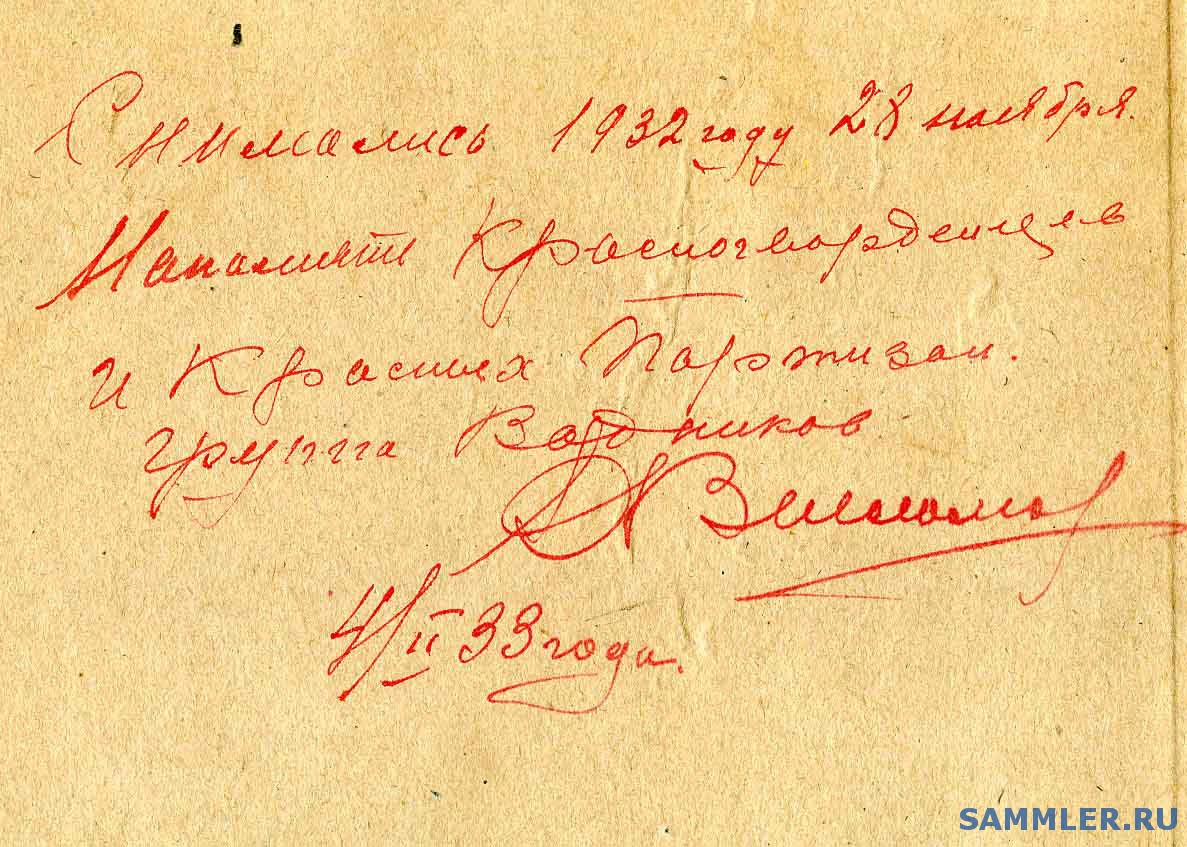 Снимались 1932 году 28 ноября.
Напомяти Красногвордейцев
и Красных Портизан.
группа Водников
4/II 33 года.
SAMMLER.RU